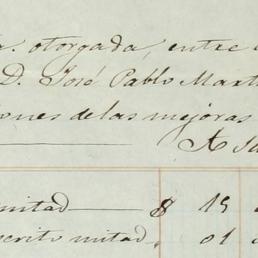 a. otorgada, entre
D. José Pablo Mart
iones de las mejoras
A Sa
mitad $ 15
scrito mitad, 01